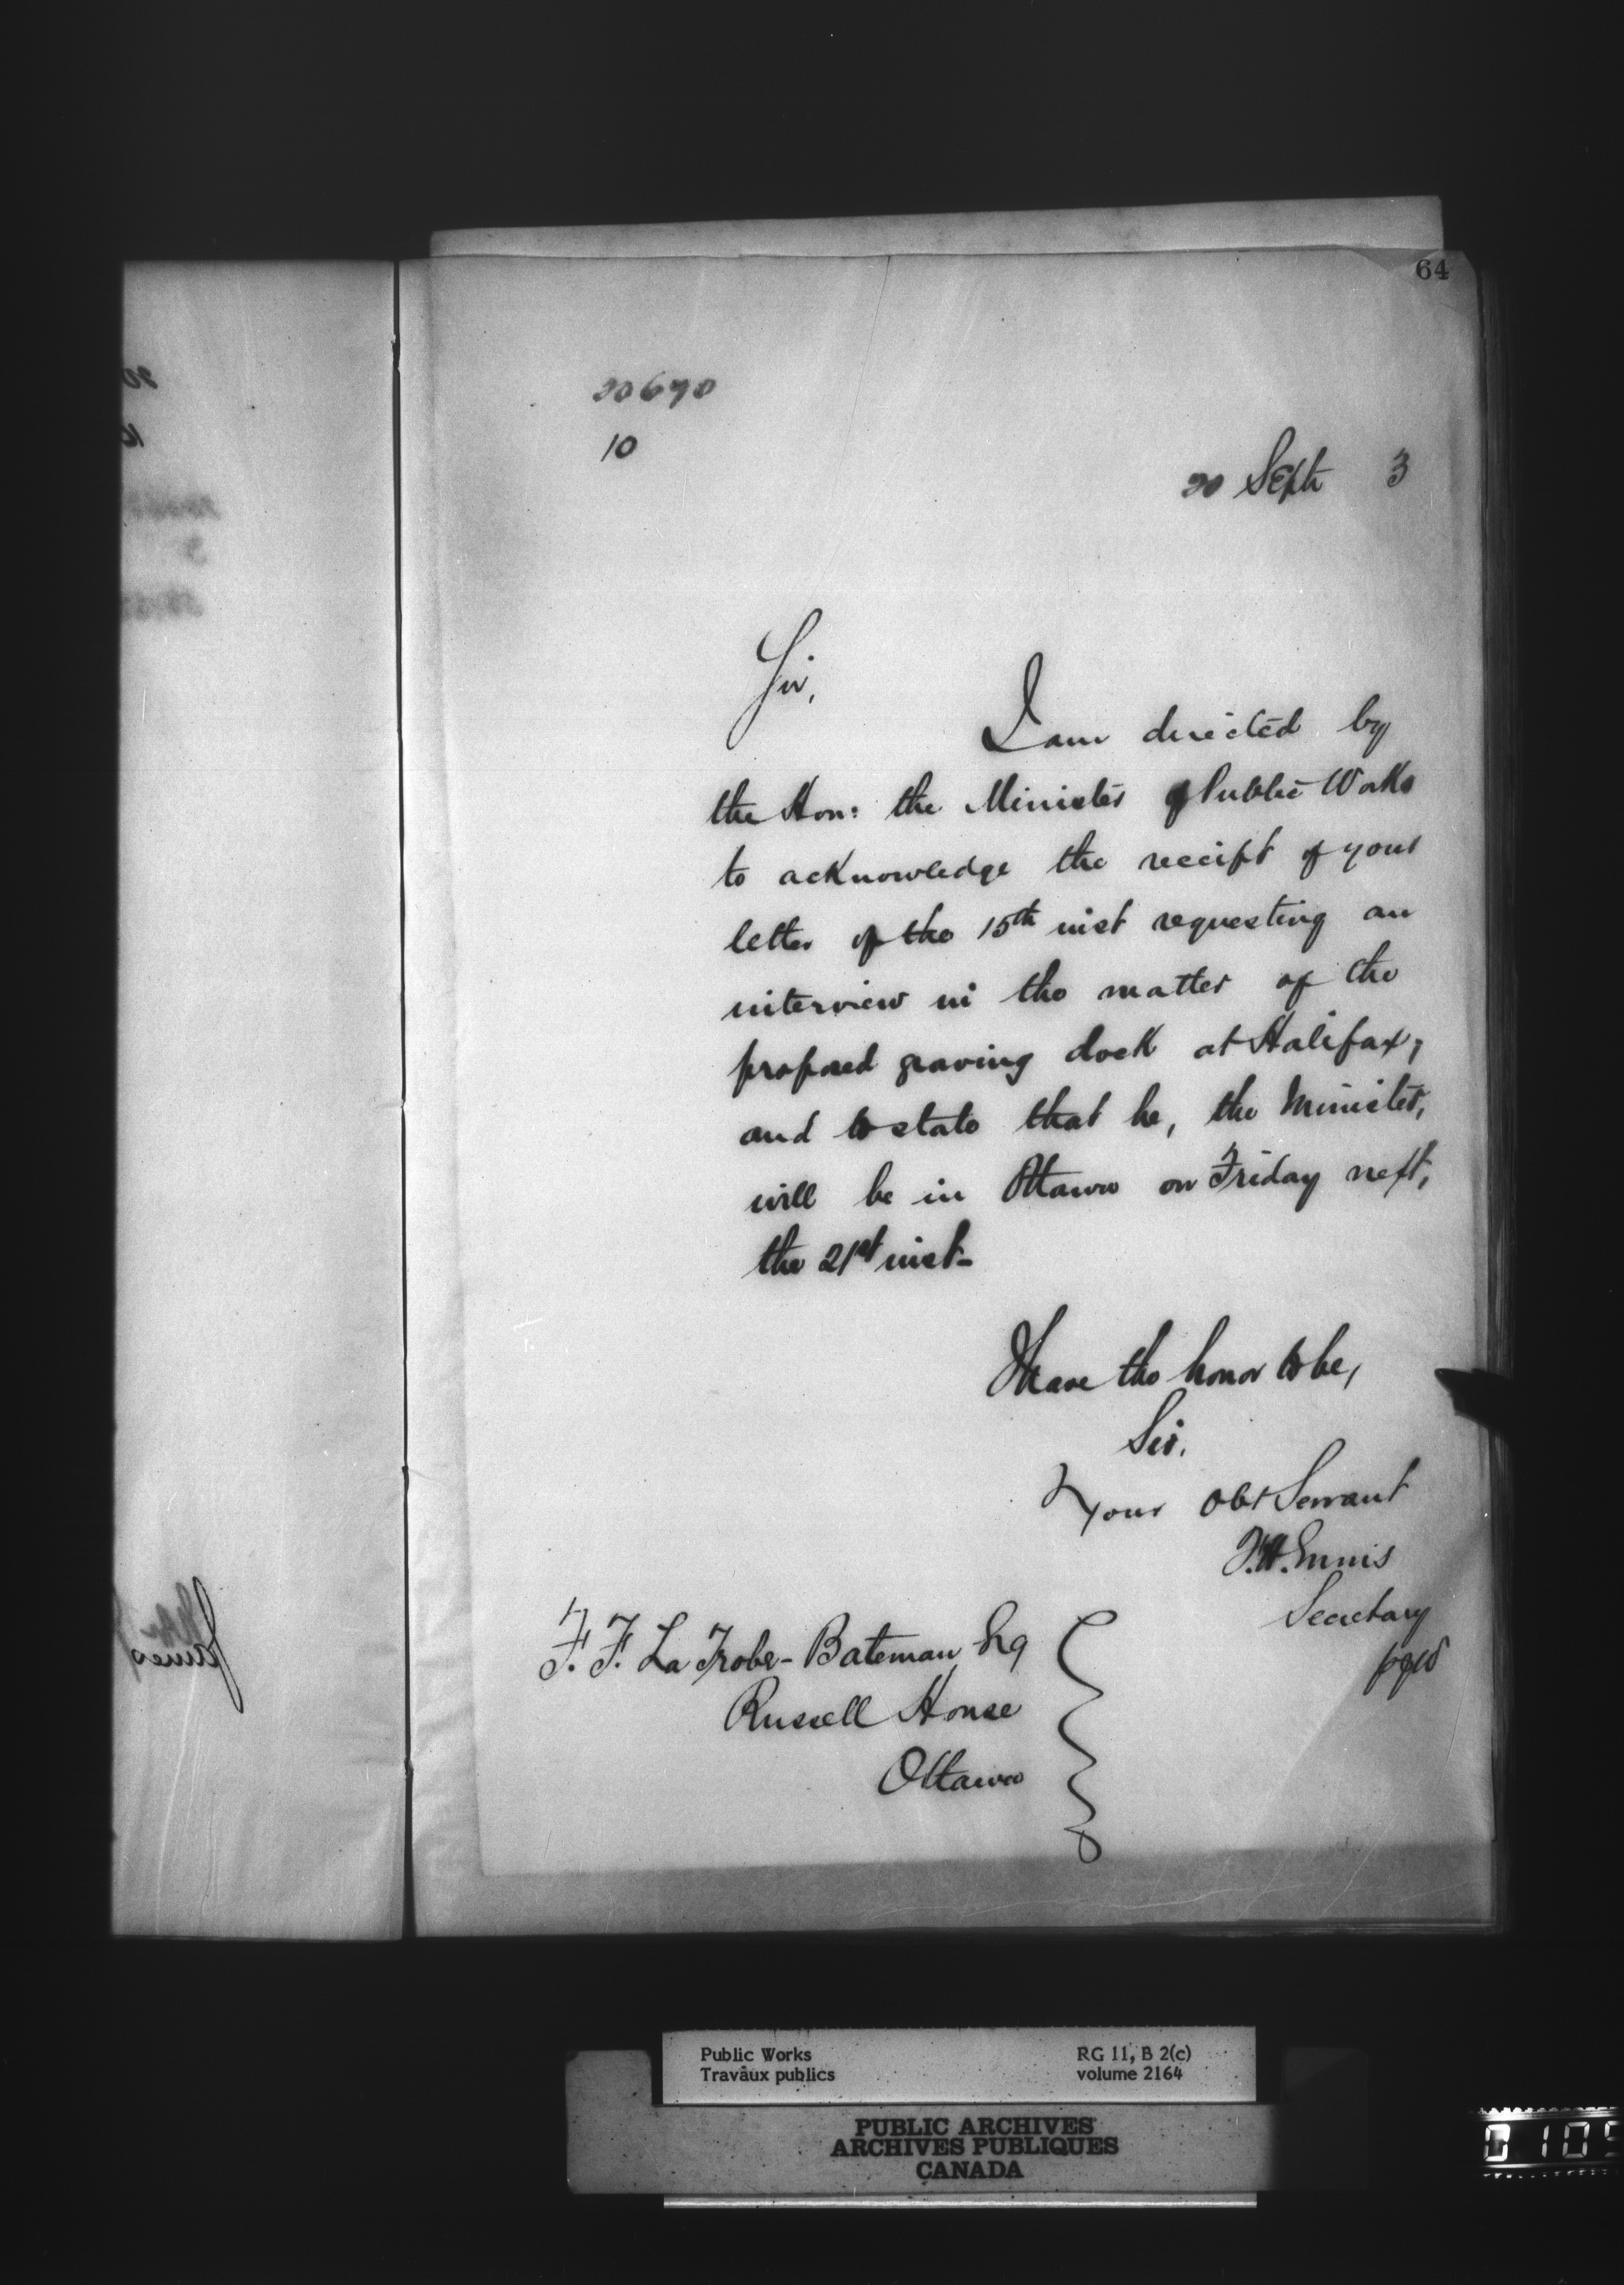 64
20690
10
20 Sept 3
Sir,
I am directed by
the Hon: the Minister of Public Works
to acknowledge the receipt of your
letter of the 15th inst requesting an
interview in the matter of the
proposed graving dock at Halifax;
and to state that he, the Minister,
will be in Ottawa on Friday next,
the 21st inst-
I have the honor to be,
Sir.
Your Obt Servant
F.H. Ennis
Secretary
F. F. La Trobe-Bateman Esq
Russell House
Ottawa
Public Works
Travaux publics
RG 11, B 2(c)
volume 2164
PUBLIC ARCHIVES
ARCHIVES PUBLIQUES
CANADA